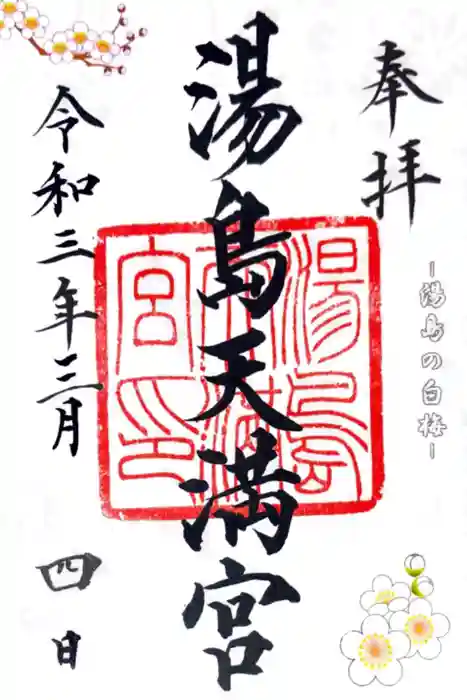 奉拝
ー湯島の白梅ー
湯島天満宮
湯島天満宮印
令和三年三月四日